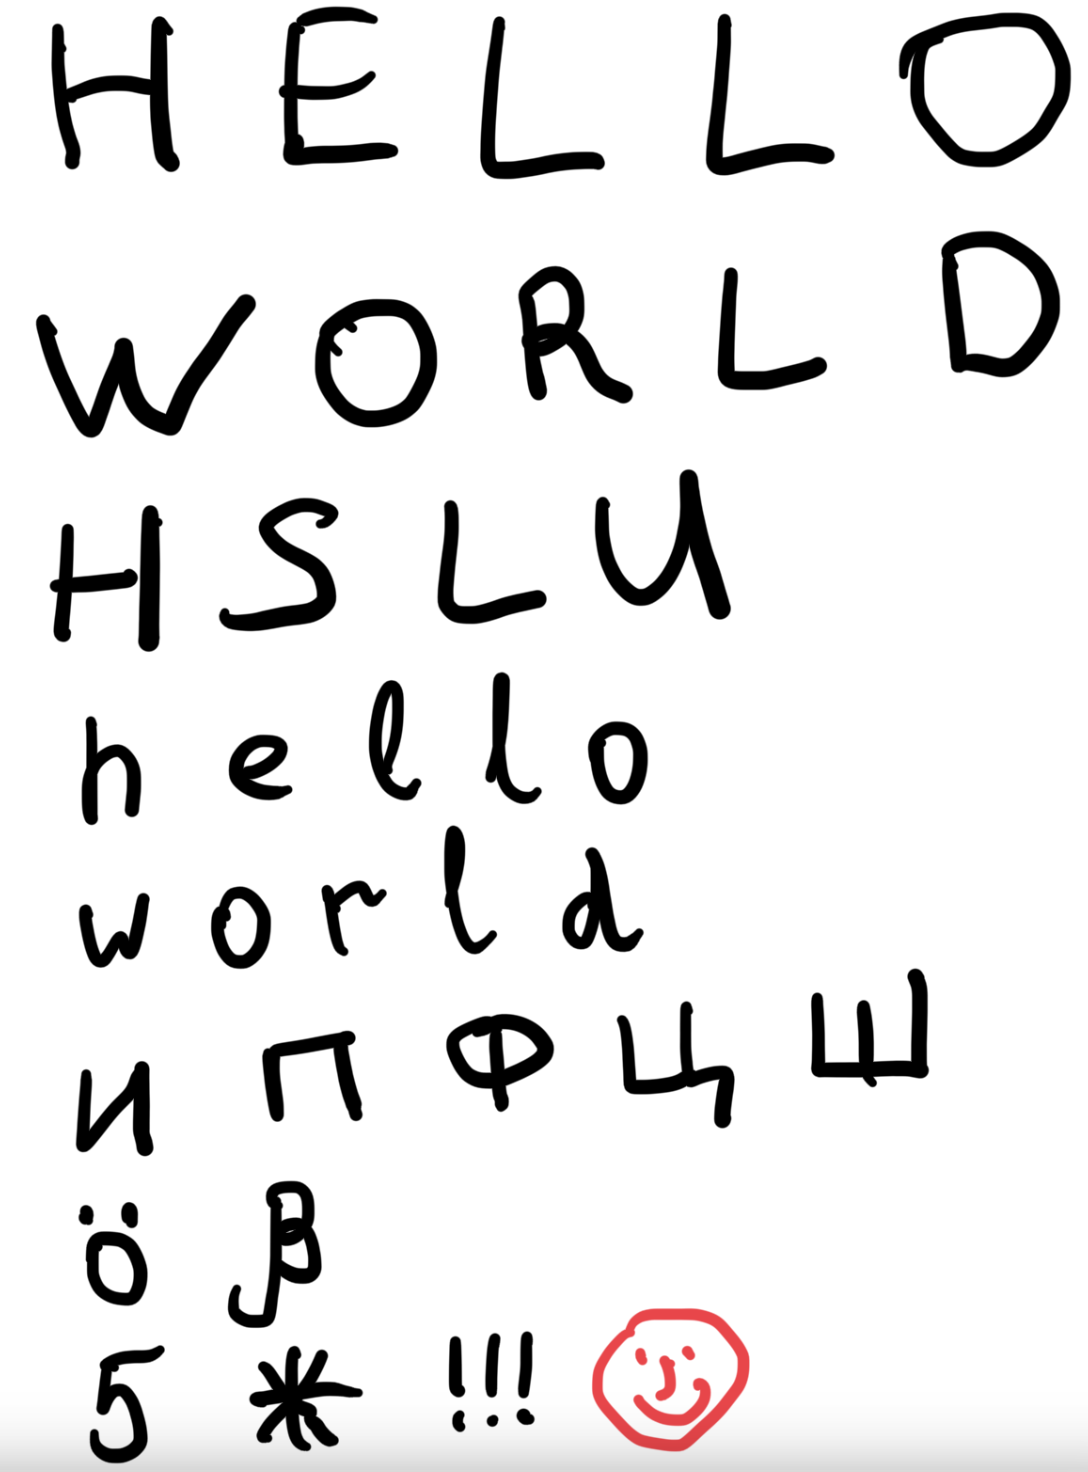 HELLO
WORLD
HSLU
hello
world
И П Ф Ц Ш
ö β
5 * !!!